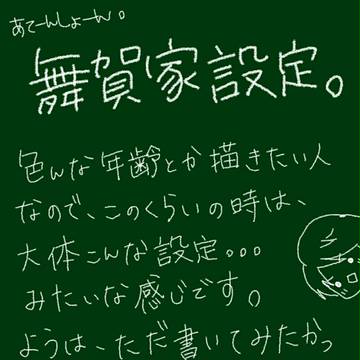 あてーんしょーん。
舞賀家設定。
色んな年齢とか描きたい人
なので、このくらいの時は、
大体こんな設定。。。
みたいな感じです。
ようは、ただ書いてみたかっ